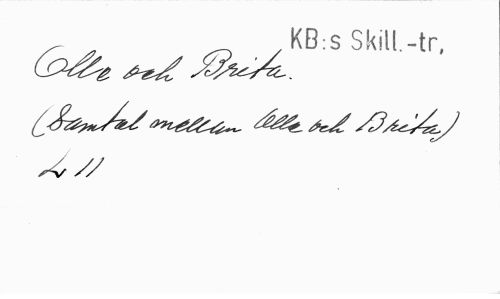 KB:s Skill.-tr,
Olle och Brita.
(Samtal mellan Olle och Brita)
L 11